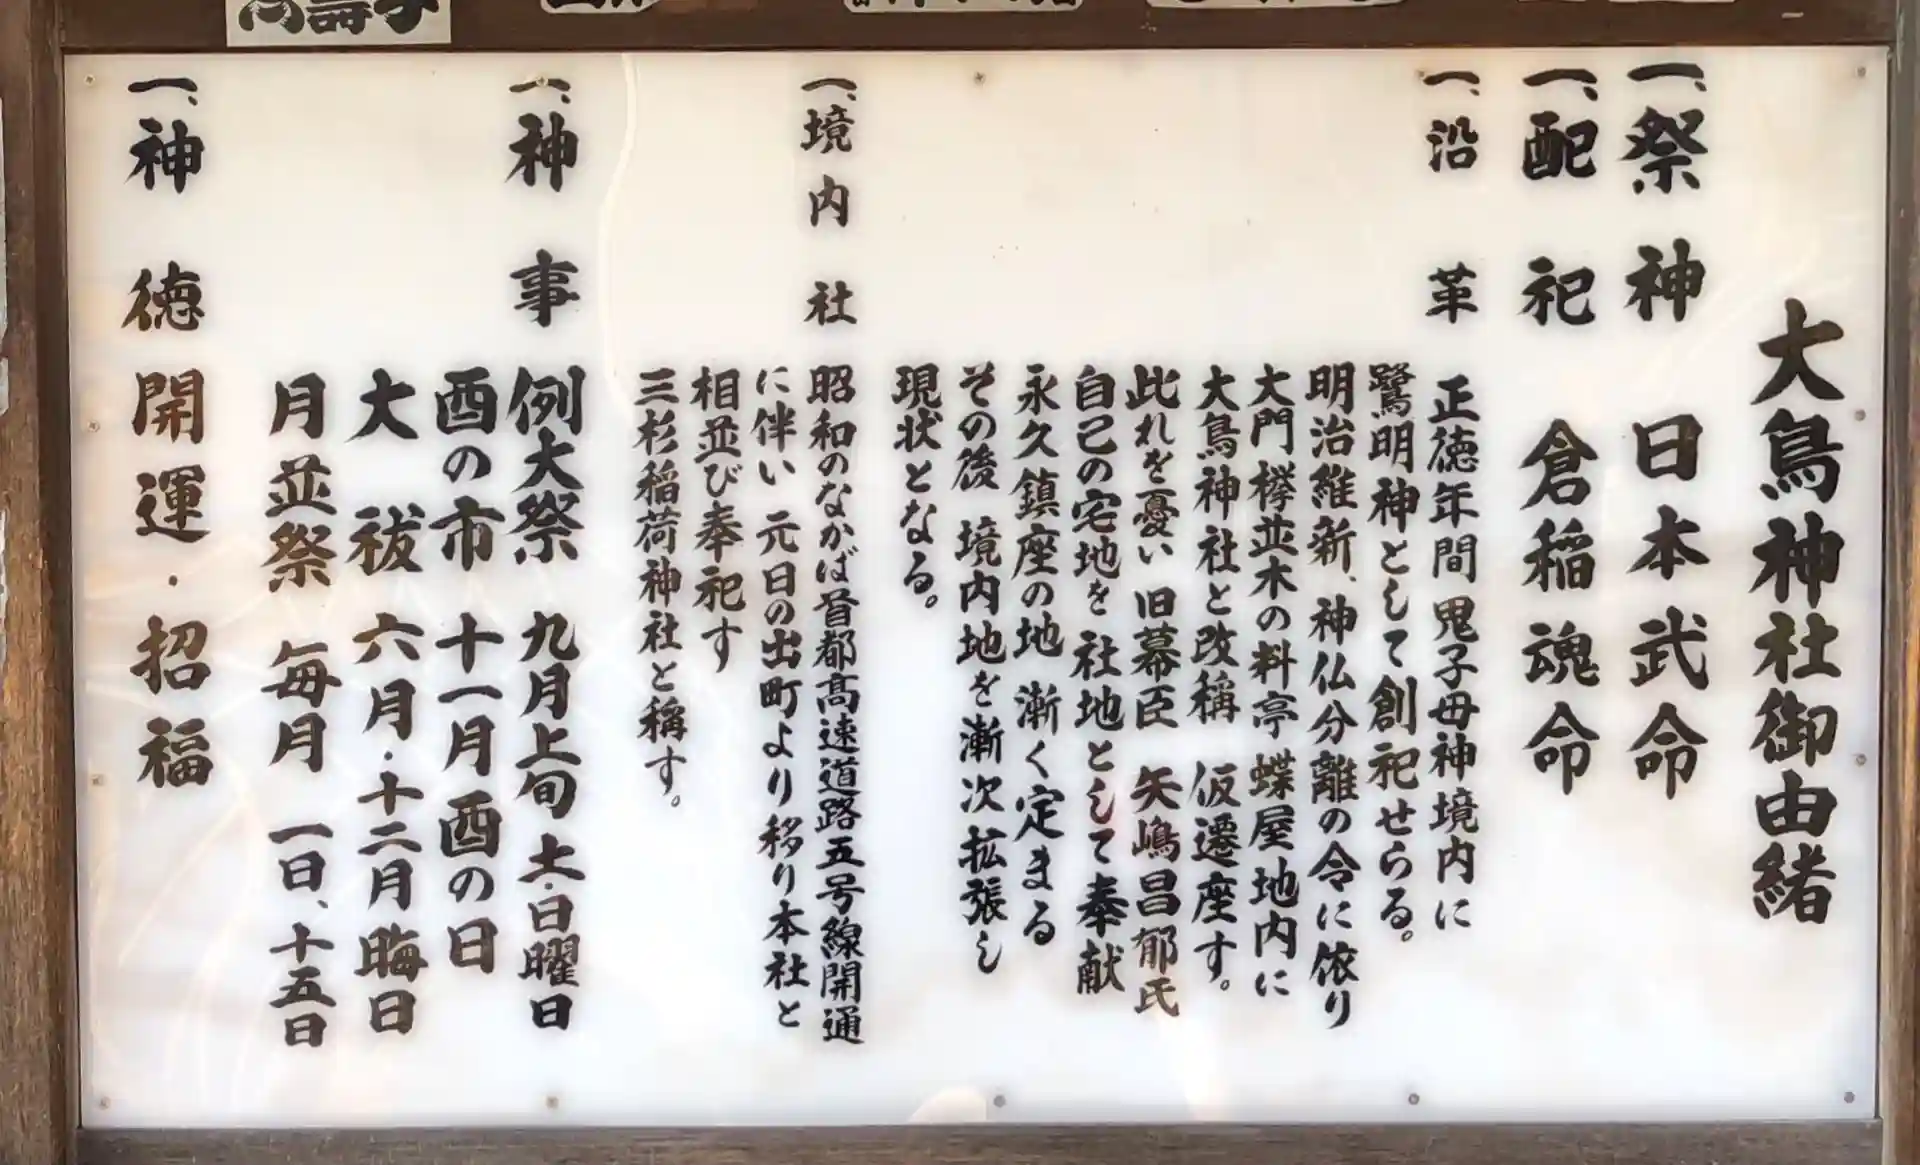 大鳥神社御由緒
一、祭神 日本武命
一、配祀 倉稲魂命
一、沿革 正徳年間 鬼子母神境内に
鷺明神として創祀せらる。
明治維新、神仏分離の令に依り
大門欅並木の料亭 蝶屋地内に
大鳥神社と改稱 仮遷座す。
此れを憂い 旧幕臣 矢嶋昌郁氏
自己の宅地を 社地として奉献
永久鎮座の地 漸く定まる
その後 境内地を漸次拡張し
現状となる。
一、境内社 昭和のなかば首都高速道路五号線開通
に伴い 元日の出町より移り本社と
相並び奉祀す
三杉稲荷神社と稱す。
一、神事 例大祭 九月上旬 土・日曜日
酉の市 十一月 酉の日
大祓 六月・十二月晦日
月並祭 毎月 一日、十五日
一、神徳 開運・招福